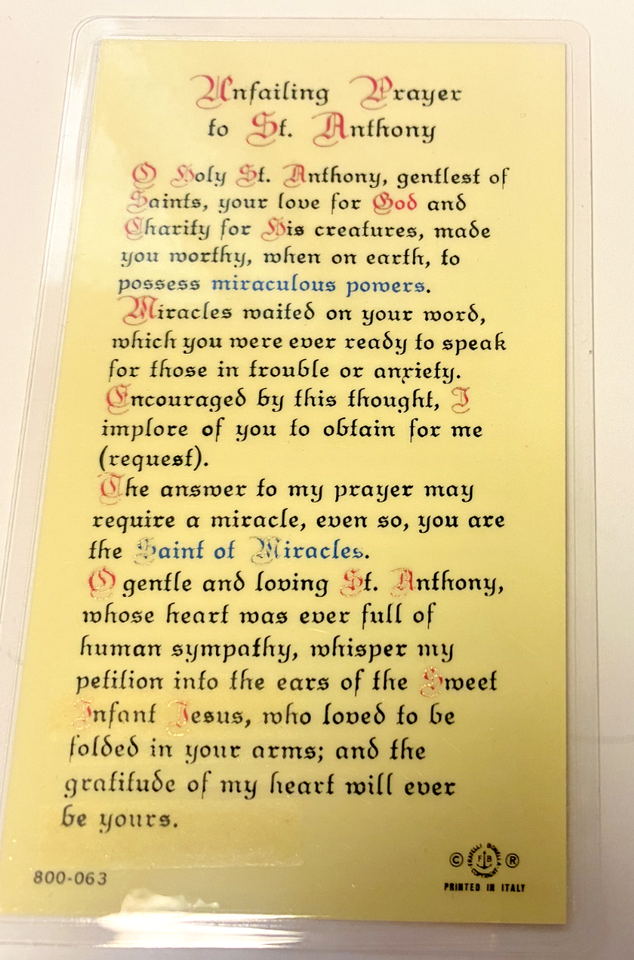 Unfailing Prayer
to St. Anthony
O Holy St. Anthony, gentlest of
Saints, your love for God and
Charity for His creatures, made
you worthy, when on earth, to
possess miraculous powers.
Miracles waited on your word,
which you were ever ready to speak
for those in trouble or anxiety.
Encouraged by this thought, I
implore of you to obtain for me
(request).
The answer to my prayer may
require a miracle, even so, you are
the Saint of Miracles.
O gentle and loving St. Anthony,
whose heart was ever full of
human sympathy, whisper my
petition into the ears of the Sweet
Infant Jesus, who loved to be
folded in your arms; and the
gratitude of my heart will ever
be yours.
800-063
© FB ®
PRINTED IN ITALY